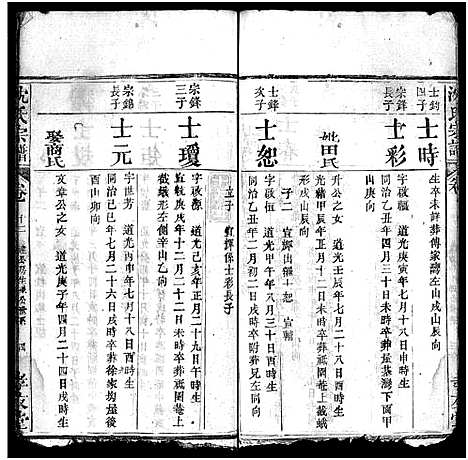 沈氏宗譜
士鈞四子
士時
生卒未詳葬傳家灣左山戌山辰向
宗鋒長子
士彩
字啟福 道光庚寅年七月十八日申時生
同治乙丑年四月三十日未時卒葬壋墓灣下庚
山庚向
妣田氏
升公之女 道光壬辰年七月二十八日酉時生
光緒甲辰年正月十二日午時卒葬祗園巷上截蛾
形戌山辰向
子二 宜輝出繼士恕 宜輔
士鋒次子
士恕
字啟恒 道光甲午年八月三十日戌時生
同治乙丑年二月初二日戌時卒附葬兄左同
向
立子 宜輝係士彩長子
宗鋒三子
士瓊
字啟源 道光己亥年正月二十九日午時生
宣統庚戌年十二月二十二日未時卒葬祗園巷上
截蛾形左側辛山乙向
宗錦長子
士元
字世芳 道光丙申年七月十八日酉時生
同治己巳年七月二十六日戌時卒葬徐家坳屋後
酉山卯向
娶商氏
文章公之女 道光庚子年四月二十四日戌時生
沈氏宗譜
卷十二
四
孝友堂